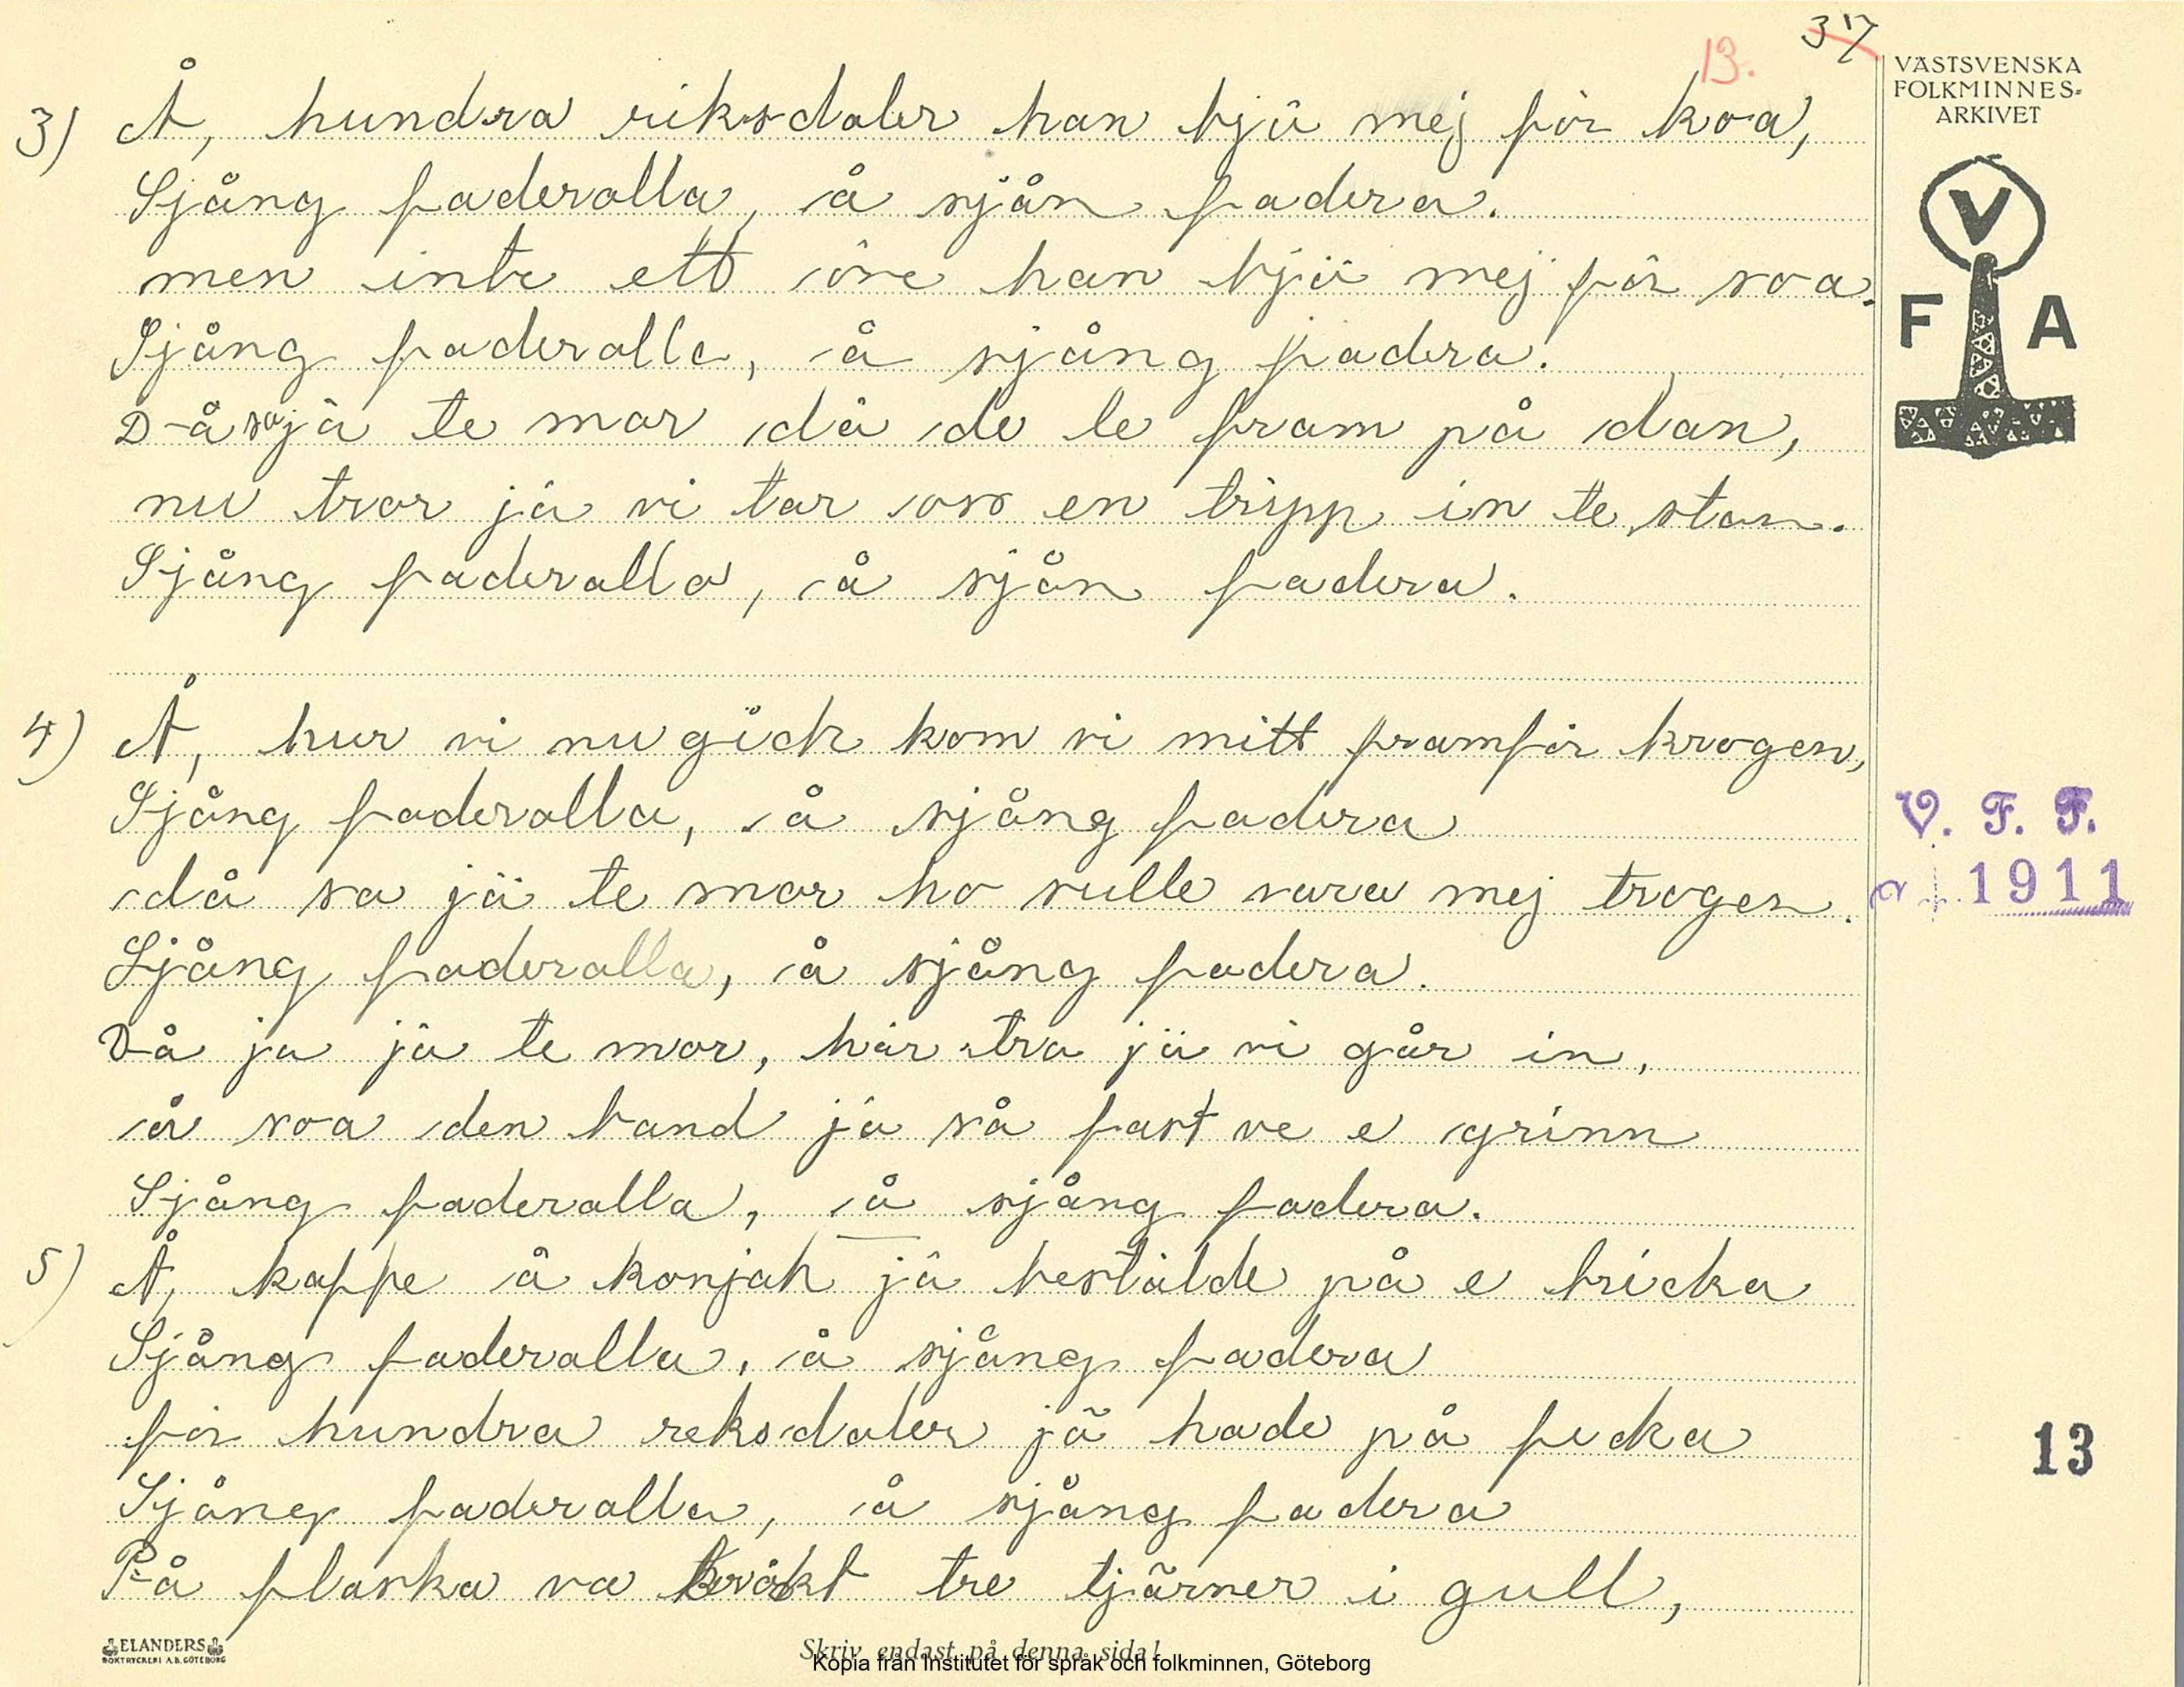 13. 37
VÄSTSVENSKA
FOLKMINNES-
ARKIVET
V
F A
3) Å, hundra riksdaler han bjö mej för koa,
Sjång faderalla, å sjån fadera.
men inte ett öre han bjö mej för soa.
Sjång faderalla, å sjång fadera.
Då sa jä te mor då de le fram på dan,
nu tror jä vi tar oss en tripp in te stan.
Sjång faderalla, å sjån fadera.
4) Å, hur vi nu gick kom vi mitt framför krogen,
Sjång faderalla, å sjång fadera
då sa jä te mor ho sulle vara mej trogen.
Sjång faderalla, å sjång fadera.
Då ja jä te mor, här tra jä vi går in,
å soa den band jä så fast ve e grinn
Sjång faderalla, å sjång fadera.
5) Å, kaffe å konjak jä bestälde på e bricka
Sjång faderalla, å sjång fadera
för hundra reksdaler jä hade på ficka
Sjång faderalla, å sjång fadera
På flaska va tre tjärner i gull,
V. F. F.
1911
13
ELANDERS
BOKTRYCKERI A.B. GÖTEBORG
Skriv endast på denna sida!
Kopia från Institutet för språk och folkminnen, Göteborg